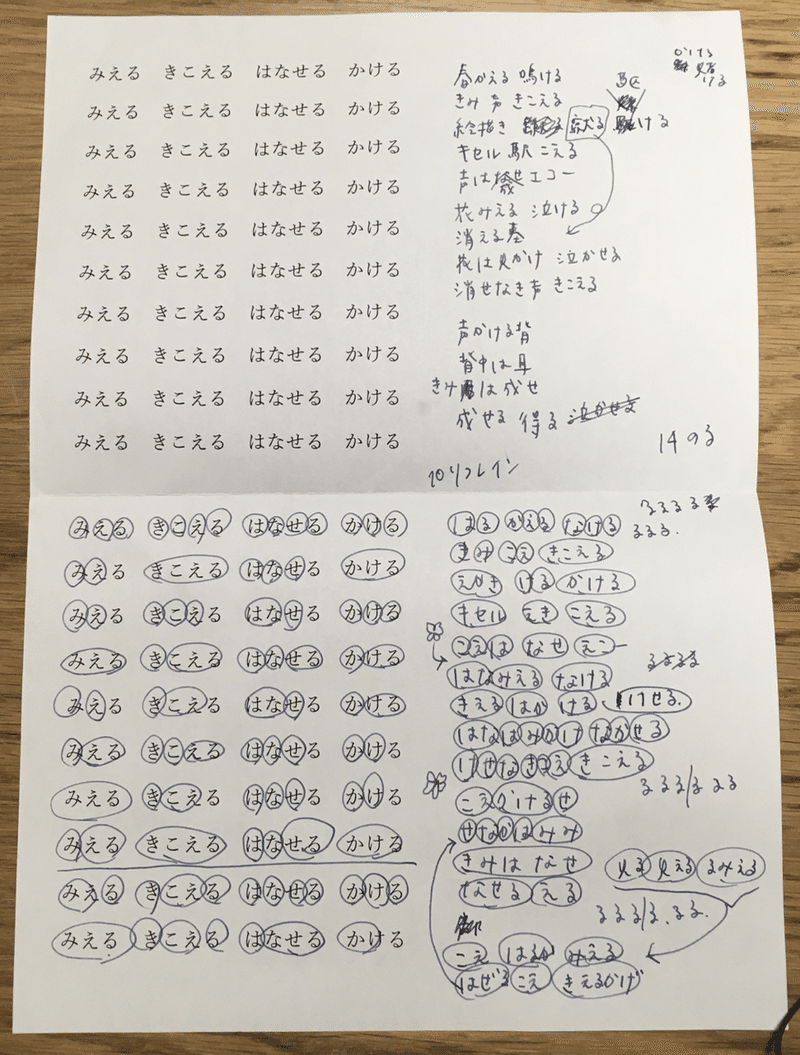 みえる きこえる はなせる かける
みえる きこえる はなせる かける
みえる きこえる はなせる かける
みえる きこえる はなせる かける
みえる きこえる はなせる かける
みえる きこえる はなせる かける
みえる きこえる はなせる かける
みえる きこえる はなせる かける
みえる きこえる はなせる かける
みえる きこえる はなせる かける
かける
ける
春かえる 鳴ける
きみ 声 きこえる
絵描き ける
キセル 駅 こえる
声は エコー
花みえる 泣ける
消える墓
花は見かけ 泣かせる
消せなき声 きこえる
声かける背
背中は耳
きみ は成せ
成せる 得る 泣かせる
14 のる
10リフレイン
みえる きこえる はなせる かける
みえる きこえる はなせる かける
みえる きこえる はなせる かける
みえる きこえる はなせる かける
みえる きこえる はなせる かける
みえる きこえる はなせる かける
みえる きこえる はなせる かける
みえる きこえる はなせる かける
みえる きこえる はなせる かける
みえる きこえる はなせる かける
はる かえる なける
るるる.
きみ こえ きこえる
えかき ける かける
キセル えき こえる
こえは なせ えこー
はなみえる なける
きえる はか ける けせる.
はなはみかけ なかせる
けせなきこえ きこえる
こえかけるせ
せなかはみみ
きみは なせ
見る 見える るみえる
なせる える
こえ はるか みえる
はぜる こえ きえるかげ